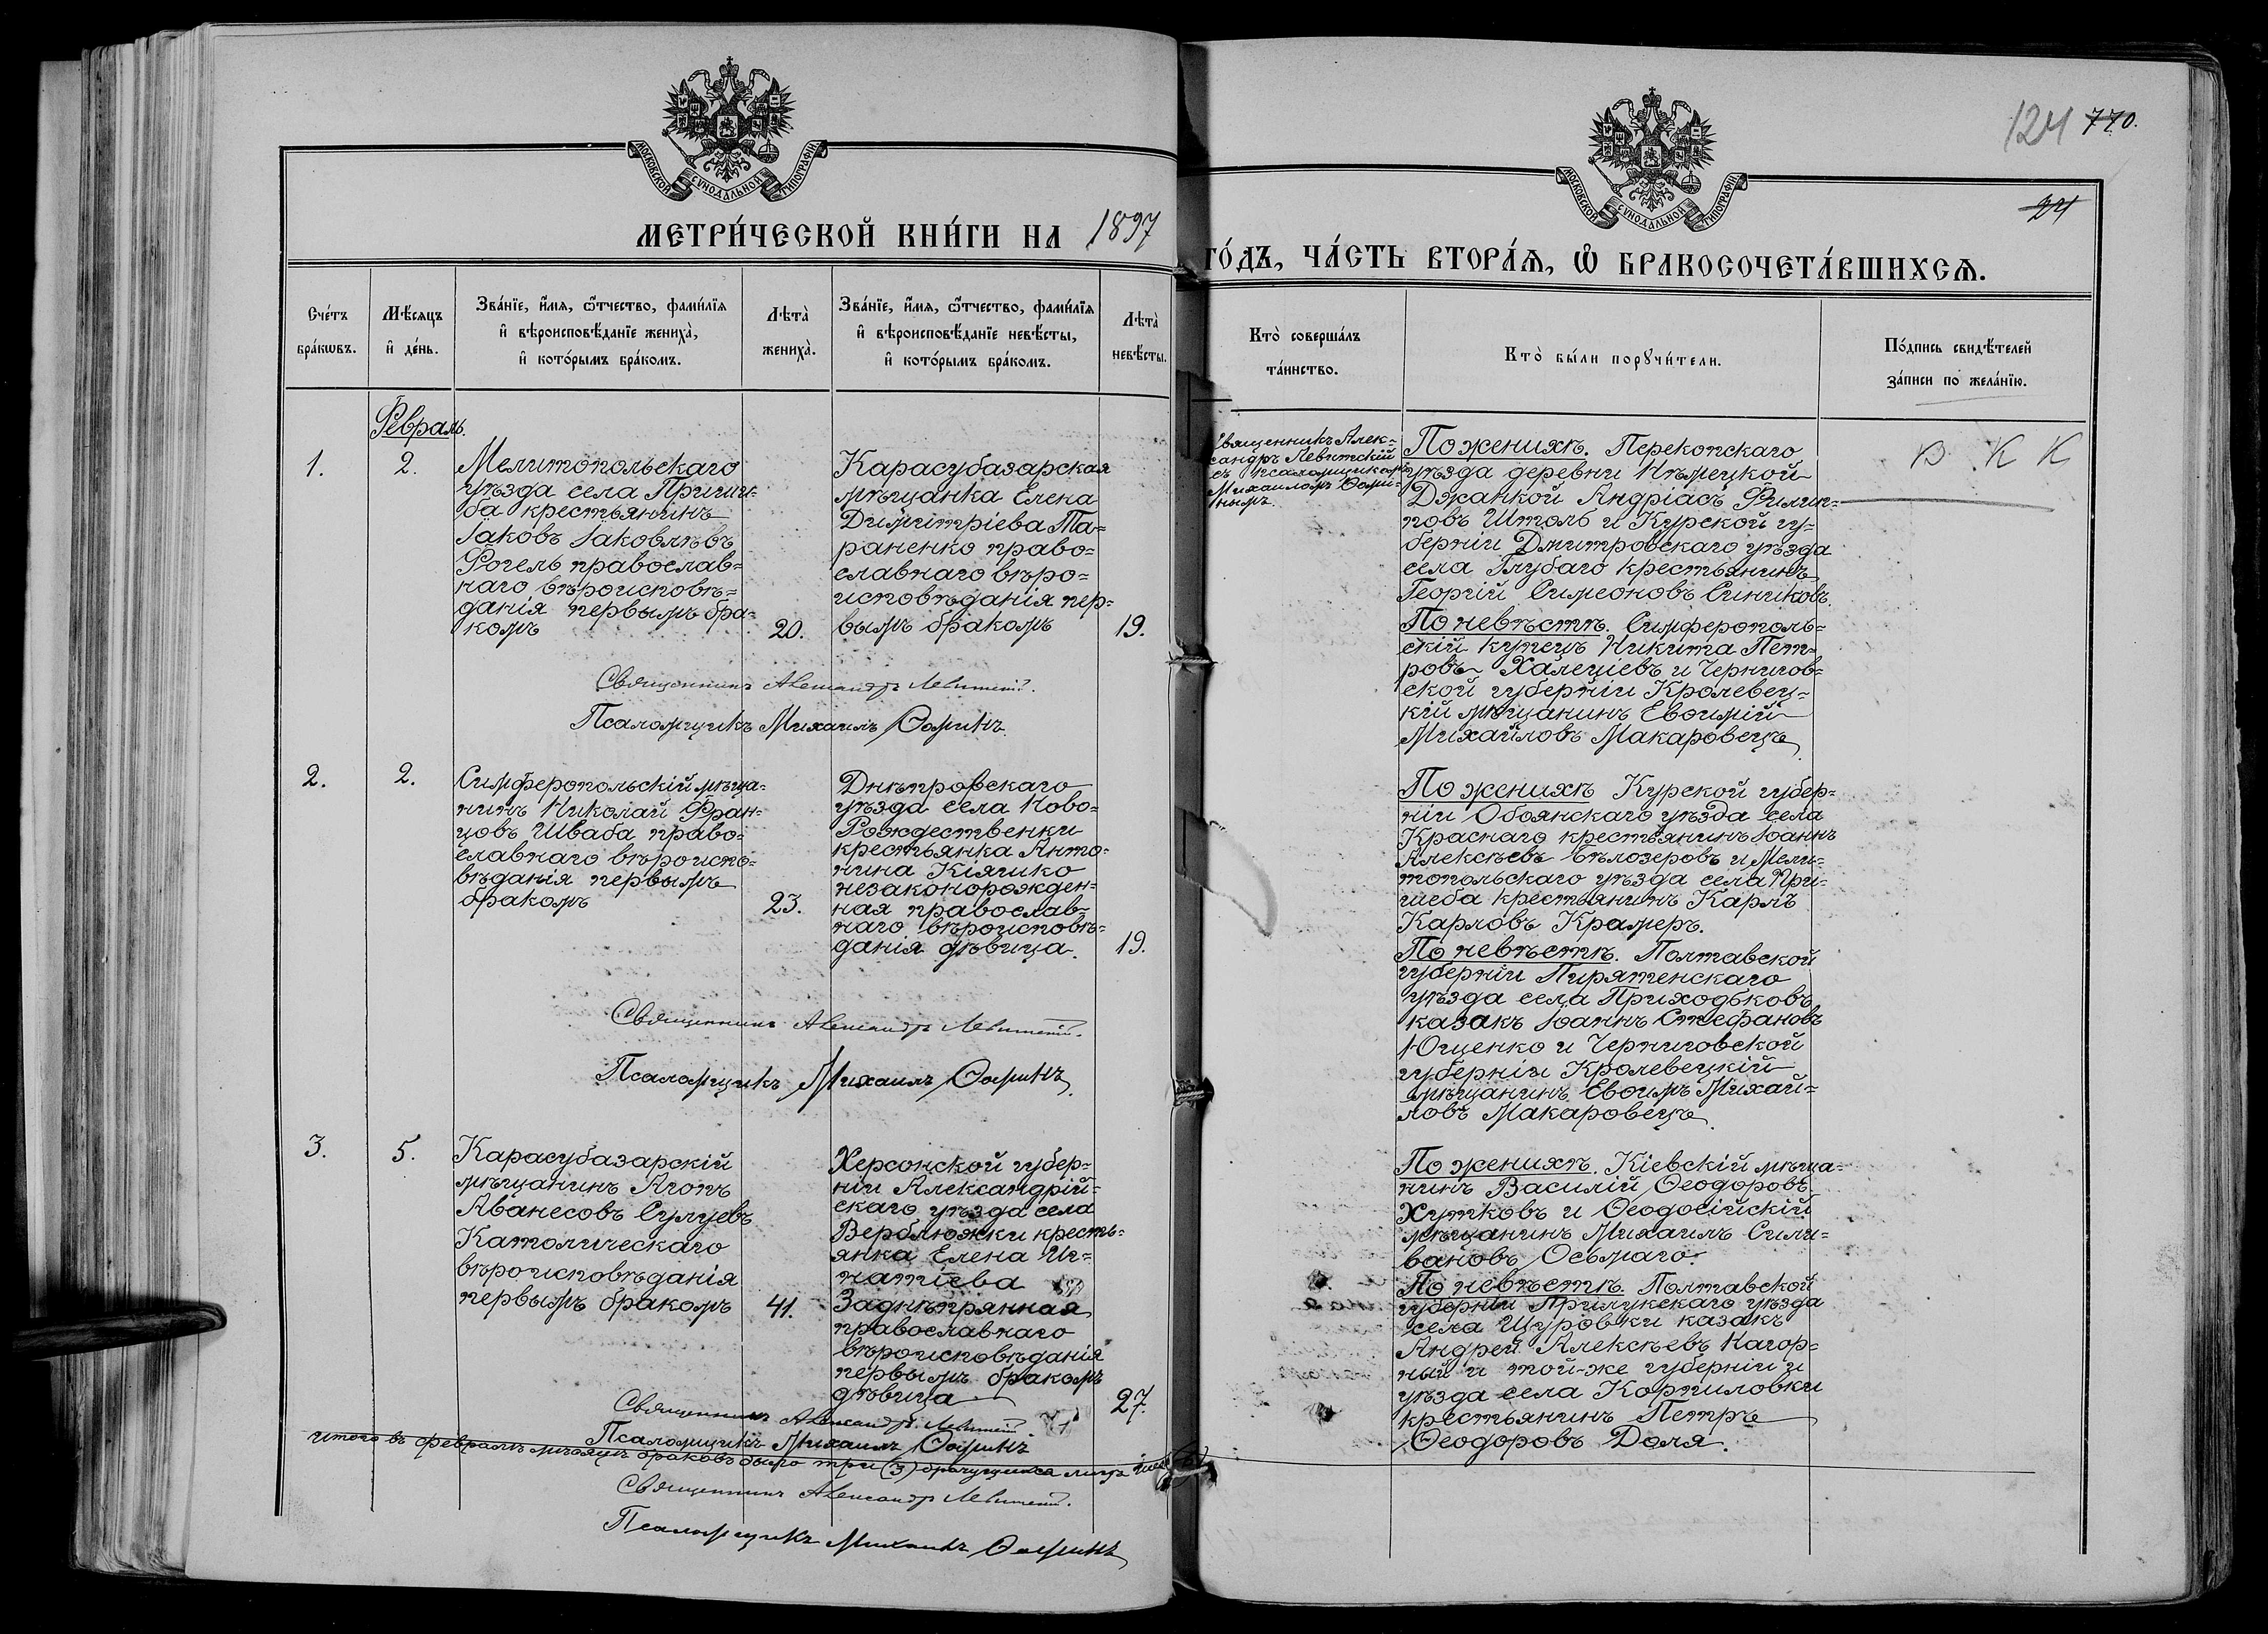 124 770.
24
МОСКОВСКОЙ СѴНОДАЛЬНОЙ ТИПОГРАФІИ
МОСКОВСКОЙ СѴНОДАЛЬНОЙ ТИПОГРАФІИ
МЕТРИ́ЧЕСКОЙ КНИ́ГИ НА 1897
ГО́ДЪ, ЧА́СТЬ ВТОРА́Ѧ, Ѡ҆ БРАКОСОЧЕТА́ВШИХСѦ.
Сче́тъ
бра́кѡвъ.
Мѣ́сѧцъ
и҆ де́нь.
Зва́нїе, и҆́мѧ, ѻ҆́тчество, фами́лїѧ
и҆ вѣроисповѣ́данїе жениха̀,
и҆ кото́рымъ бра́комъ.
Лѣта̀
жениха̀.
Зва́нїе, и҆́мѧ, ѻ҆́тчество, фами́лїѧ
и҆ вѣроисповѣ́данїе невѣ́сты,
и҆ кото́рымъ бра́комъ.
Лѣта̀
невѣ́сты.
Кто̀ соверша́лъ
та́инство.
Кто̀ бы́ли порꙋчи́тели.
По́дпись свидѣ́телей
за́писи по жела́нїю.
Февраль.
1.
2.
Мелитопольскаго
уѣзда села Пришиб-
ба крестьянинъ
Іаковъ Іаковлевъ
Фогель православ=
наго вѣроисповѣ=
данія первымъ бра-
комъ
20.
Карасубазарская
мѣщанка Елена
Димитріева Та=
раненко право=
славнаго вѣро=
исповѣданія пер-
вымъ бракомъ
19.
Священникъ Алек=
сандръ Левитскій
съ псаломщикомъ
Михаиломъ Ѳоми-
нымъ.
По женихѣ. Перекопскаго
уѣзда деревни Нѣмецкой
Джанкой Андріасъ Филип=
повъ Штоль и Курской гу-
берніи Дмитровскаго уѣзда
села Глубаго крестьянинъ
Георгій Симеоновъ Синиковъ.
По невѣстѣ. Симферополь=
скій купецъ Никита Пет-
ровъ Халецієвъ и Чернигов=
ской губерніи Кролевец-
кій мѣщанинъ Евѳимій
Михайловъ Макаровецъ
Священникъ Александръ Левитскій.
Псаломщикъ Михаилъ Ѳоминъ.
2.
2.
Симферопольскій мѣща-
нинъ Николай Фран-
цовъ Шваба право-
славнаго вѣроиспо=
вѣданія первымъ
бракомъ
23.
Днѣпровскаго
уѣзда села Ново-
Рождественки
крестьянка Анто-
нина Кіяшко
незаконорожден-
ная православ-
наго вѣроисповѣ-
данія дѣвица.
19.
По женихѣ Курской губер-
ніи Обоянскаго уѣзда села
Краснаго крестьянинъ Іоаннъ
Алексѣевъ Бѣлозеровъ и Мели-
топольскаго уѣзда села При-
шеба крестьянинъ Карлъ
Карловъ Крамеръ.
По невѣстѣ. Полтавской
губерніи Пирятенскаго
уѣзда села Приходьковъ
казакъ Іоаннъ Стефановъ
Ющенко и Черниговской
губерніи Кролевецкій
мѣщанинъ Евѳимъ Михай=
ловъ Макаровецъ.
Священникъ Александръ Левитскій.
Псаломщикъ Михаилъ Ѳоминъ.
3.
5.
Карасубазарскій
мѣщанинъ Агопъ
Аванесовъ Сулуевъ
Католическаго
вѣроисповѣданія
первымъ бракомъ
41.
Херсонской губер=
ніи Александрій-
скаго уѣзда села
Верблюжки кресть-
янка Елена Иг-
натіева
Заднѣпрянная
православнаго
вѣроисповѣданія
первымъ бракомъ
дѣвица
27.
По женихѣ. Кіевскій мѣща-
нинъ Василій Ѳеодоровъ
Хутковъ и Ѳеодосійскій
мѣщанинъ Михаилъ Сили-
вановъ Осьмаго.
По невѣстѣ. Полтавской
губерніи Прилукскаго уѣзда
села Щуровки казакъ
Андрей Алексѣевъ Нагор-
ный и той-же губерніи и
уѣзда села Корниловки
крестьянинъ Петръ
Ѳеодоровъ Доля.
Священникъ Александръ Левитскій
Псаломщикъ Михаилъ Ѳоминъ
Итого въ февралѣ мѣсяцѣ браковъ было три (3) брачущихся лицъ шесть (6)
Священникъ Александръ Левитскій.
Псаломщикъ Михаилъ Ѳоминъ